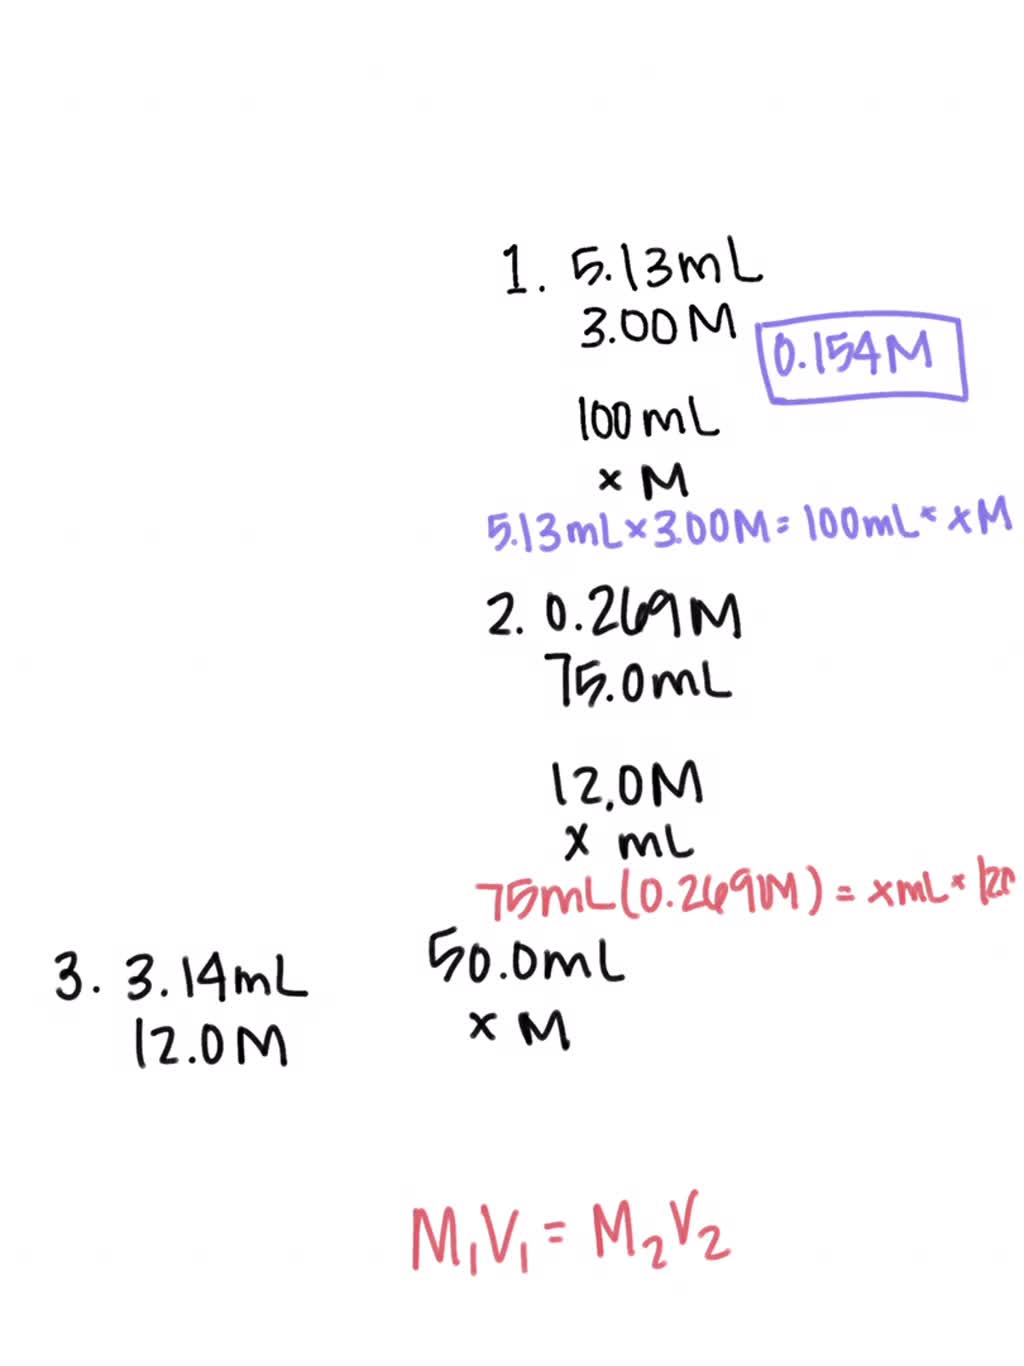 1. 5.13mL
3.00M
0.154M
100mL
x M
5.13mL x 3.00M = 100mL * xM
2. 0.269M
75.0mL
12.0M
x mL
75mL(0.269M) = xmL * 12.0
3. 3.14mL
12.0M
50.0mL
x M
M₁V₁ = M₂V₂